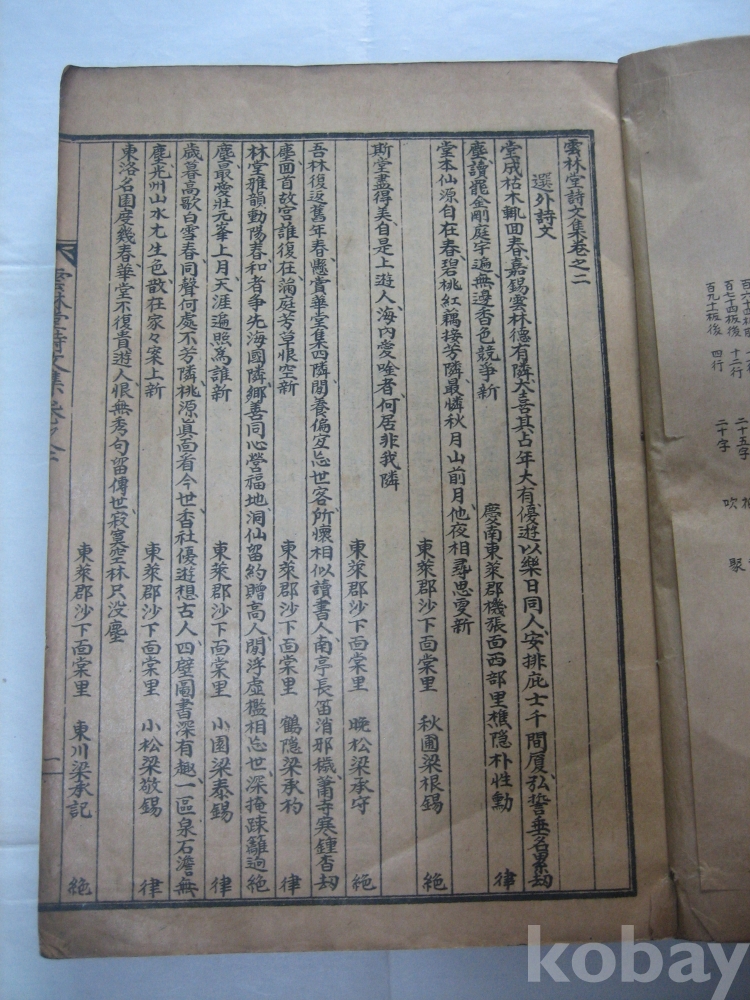 雲林堂詩文集卷之二
選外詩文
堂成枯木輒回春嘉錫雲林德有隣大喜其占年大有優遊以樂日同人安排庇士千間厦弘誓垂名累劫
塵讀罷金剛庭宇遍無邊香色競爭新 慶南東萊郡機張面西部里樵隱朴性勳 律
堂本仙源自在春碧桃紅藕接芳隣最憐秋月山前月他夜相尋思更新
東萊郡沙下面棠里 秋圃梁根錫 絶
斯堂盡得美自是上遊人海內愛唫者何居非我隣
東萊郡沙下面棠里 晩松梁承守 絶
吾林復返舊年春懸賞華堂集四隣閒養偏宜忘世客所懷相似讀書人南亭長笛消邪穢蕭寺寒鍾杳劫
塵回首故宮誰復在滿庭芳草恨空新 東萊郡沙下面棠里 鶴隱梁承杓 律
林堂雅韻動陽春和者爭先海國隣鄉善同心營福地洞仙留約贈高人閒浮虛檻相忘世深掩踈籬逈絶
塵最愛壯元峯上月天涯遍照為誰新 東萊郡沙下面棠里 小園梁泰錫 律
歲暮高歌白雪春同聲何處不芳隣桃源眞面看今世香社優遊想古人四壁圖書深有趣一區泉石澹無
塵光州山水尤生色散在家々案上新 東萊郡沙下面棠里 小松梁敬錫 律
東洛名園度幾春華堂不復貴遊人恨無秀句留傳世寂寞空林只沒塵
東萊郡沙下面棠里 東川梁承記 絶
雲林堂詩文集 卷之二
二
百七十四板後 十二行 二十五字
百九十板後 四行 二十字 吹